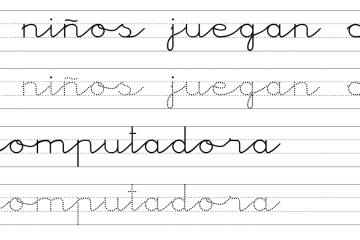 niños juegan c
niños juegan c
omputadora
omputadora